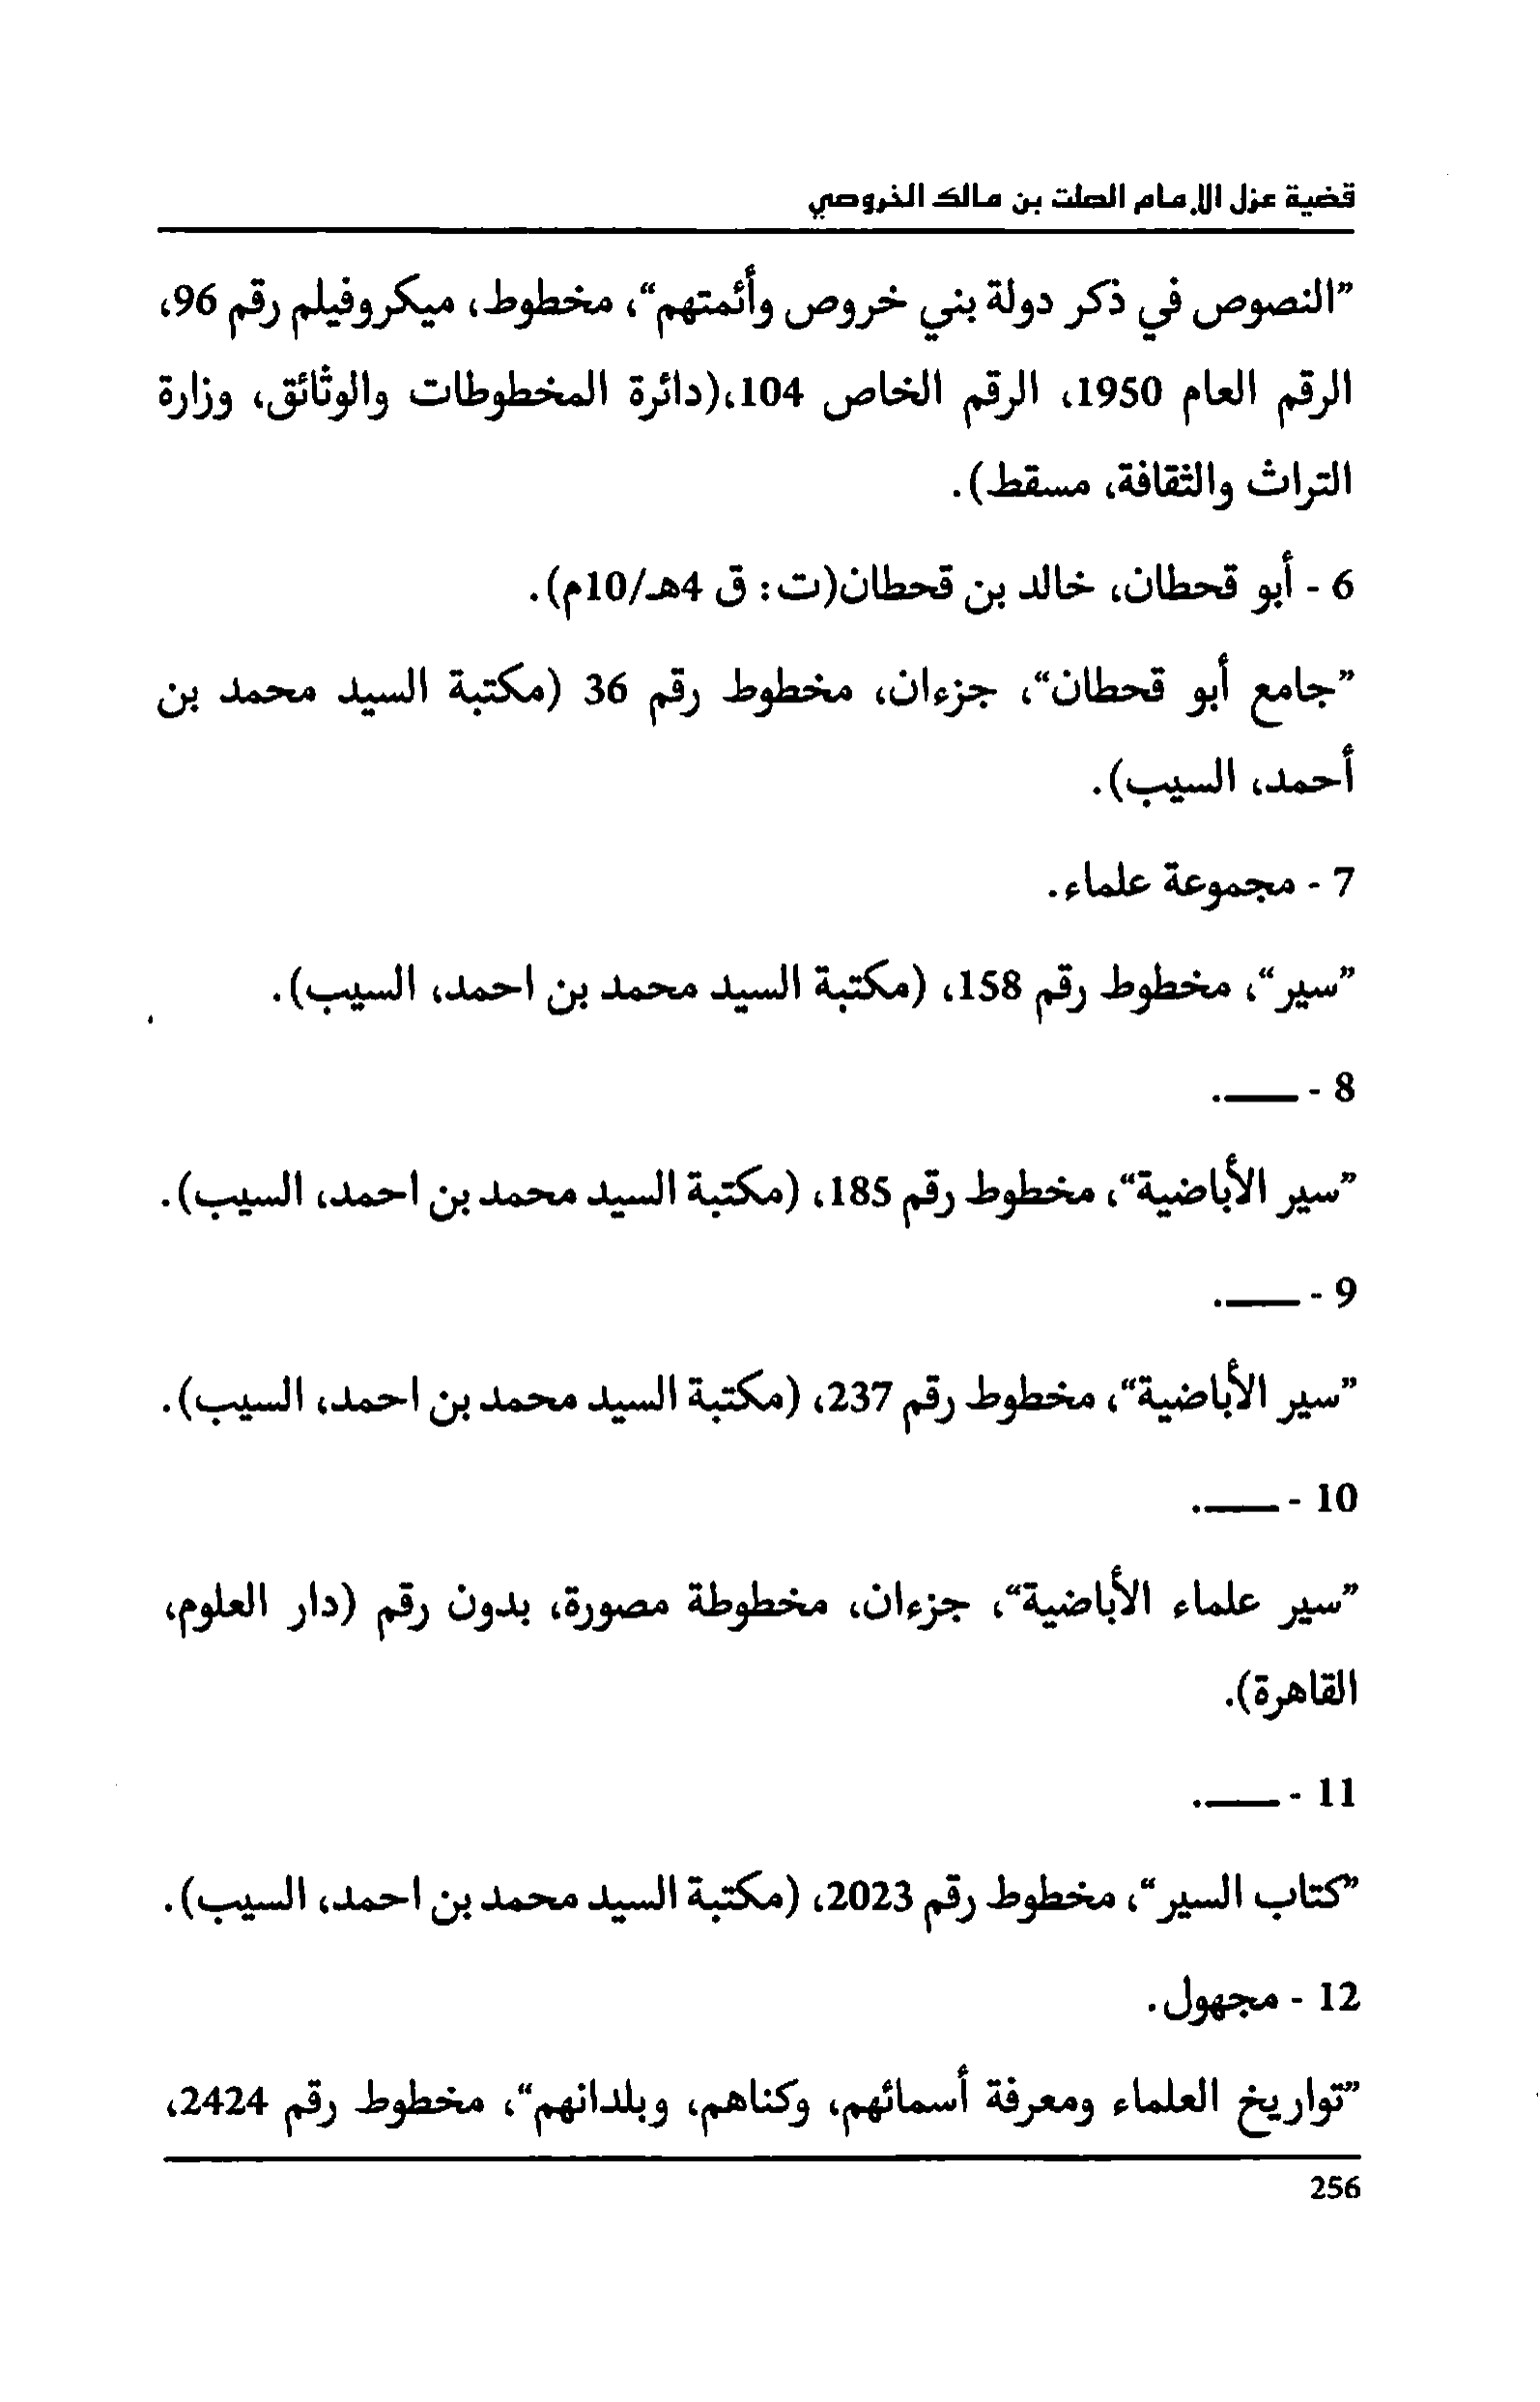 قضية عزل الإمام الصلت بن مالك الخروصي
”النصوص في ذكر دولة بني خروص وأئمتهم“، مخطوط، ميكروفيلم رقم 96،
الرقم العام 1950، الرقم الخاص 104،(دائرة المخطوطات والوثائق، وزارة
التراث والثقافة، مسقط).
6 - أبو قحطان، خالد بن قحطان(ت: ق 4هـ/10م).
”جامع أبو قحطان“، جزءان، مخطوط رقم 36 (مكتبة السيد محمد بن
أحمد، السيب).
7 - مجموعة علماء.
”سير“، مخطوط رقم 158، (مكتبة السيد محمد بن احمد، السيب).
8 - ——.
”سير الأباضية“، مخطوط رقم 185، (مكتبة السيد محمد بن احمد، السيب).
9 - ——.
”سير الأباضية“، مخطوط رقم 237، (مكتبة السيد محمد بن احمد، السيب).
10 - ——.
”سير علماء الأباضية“، جزءان، مخطوطة مصورة، بدون رقم (دار العلوم،
القاهرة).
11 - ——.
”كتاب السير“، مخطوط رقم 2023، (مكتبة السيد محمد بن احمد، السيب).
12 - مجهول.
”تواريخ العلماء ومعرفة أسمائهم، وكناهم، وبلدانهم“، مخطوط رقم 2424،
256